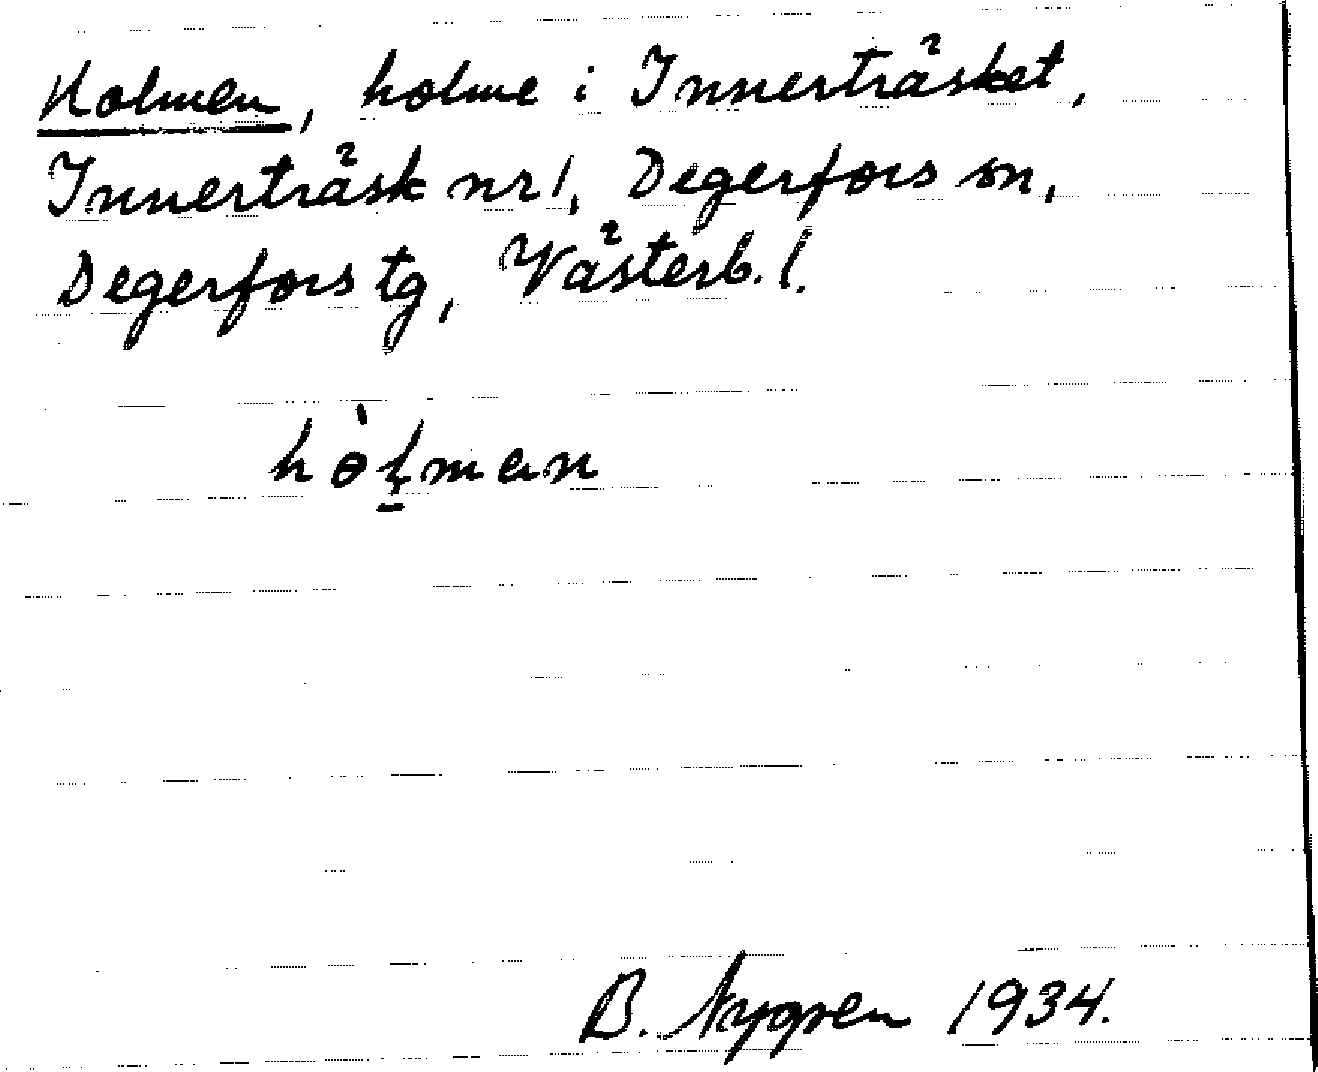 Holmen, holme i Innerträsket,
Innerträsk nr 1, Degerfors sn,
Degerfors tg, Västerb. l.
hòl̠man
B. Nygren 1934.